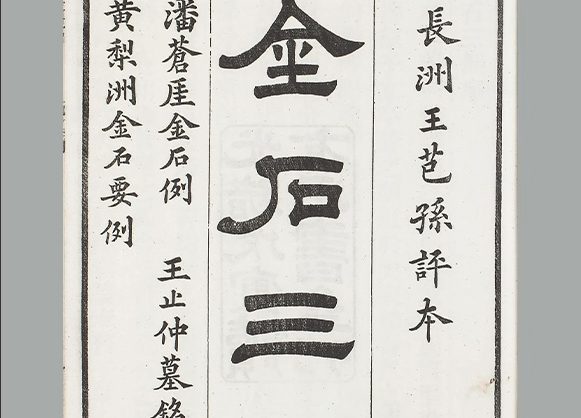 長洲王芑孫評本
金石三
潘蒼厓金石例　王止仲墓銘
黃梨洲金石要例